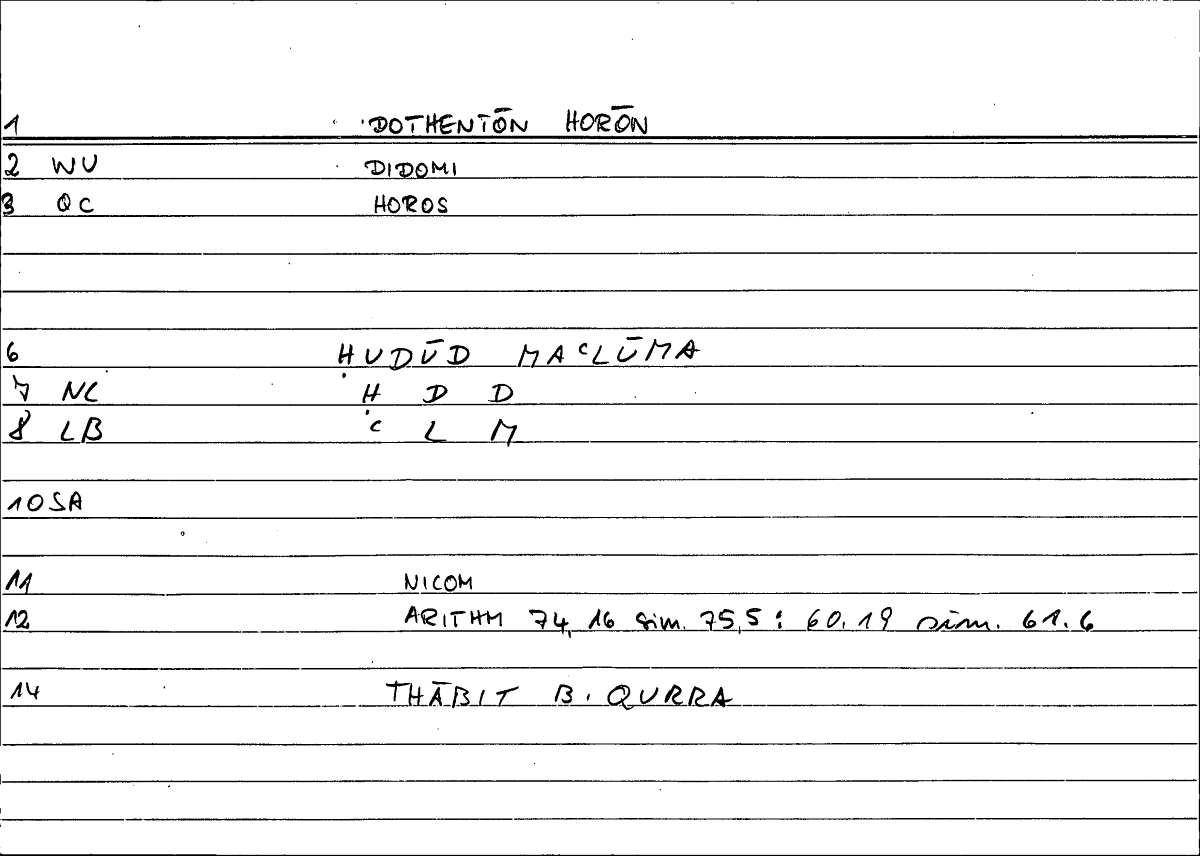 1 DOTHENTŌN HORŌN
2 WU DIDOMI
3 QC HOROS
6 ḤUDŪD MAᶜLŪMA
7 NC Ḥ D D
8 LB ᶜ L M
10 SA
11 NICOM
12 ARITHM 74,16 sim. 75,5 : 60.19 sim. 61.6
14 THĀBIT B. QURRA